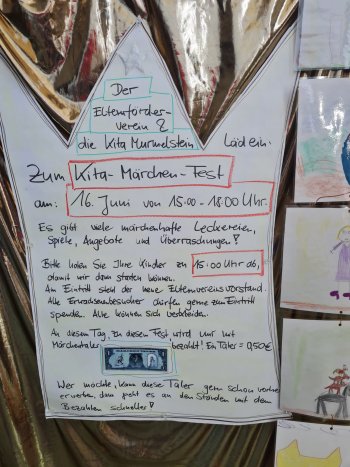 Der
Elternförder-
verein &
die Kita Murmelstein Läd ein:
Zum Kita-Märchen-Fest
am: 16. Juni von 15.00 - 18:00 Uhr.
Es gibt viele märchenhafte Leckereien,
Spiele, Angebote und Überraschungen!
Bitte holen Sie Ihre Kinder zu 15:00 Uhr ab,
damit wir dann starten können.
Am Eintritt steht der neue Elternvereinsvorstand.
Alle Erwachsenbesucher dürfen gerne zum Eintritt
spenden. Alle können sich verkleiden.
An diesem Tag, zu diesem Fest wird nur mit
Märchentaler bezahlt! Ein Taler = 0,50€
Wer möchte, kann diese Taler gern schon vorher
erwerben, dann geht es an den Ständen mit dem
Bezahlen schneller!